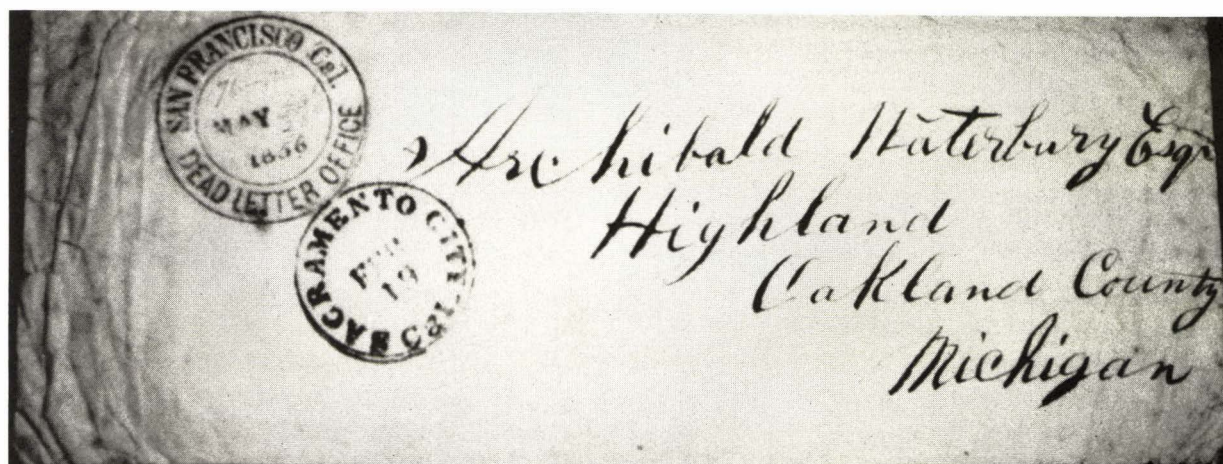 SAN FRANCISCO Cal.
MAY
1856
DEAD LETTER OFFICE
SACRAMENTO CITY Cal.
FEB
19
Archibald Waterbury Esqr
Highland
Oakland County
Michigan